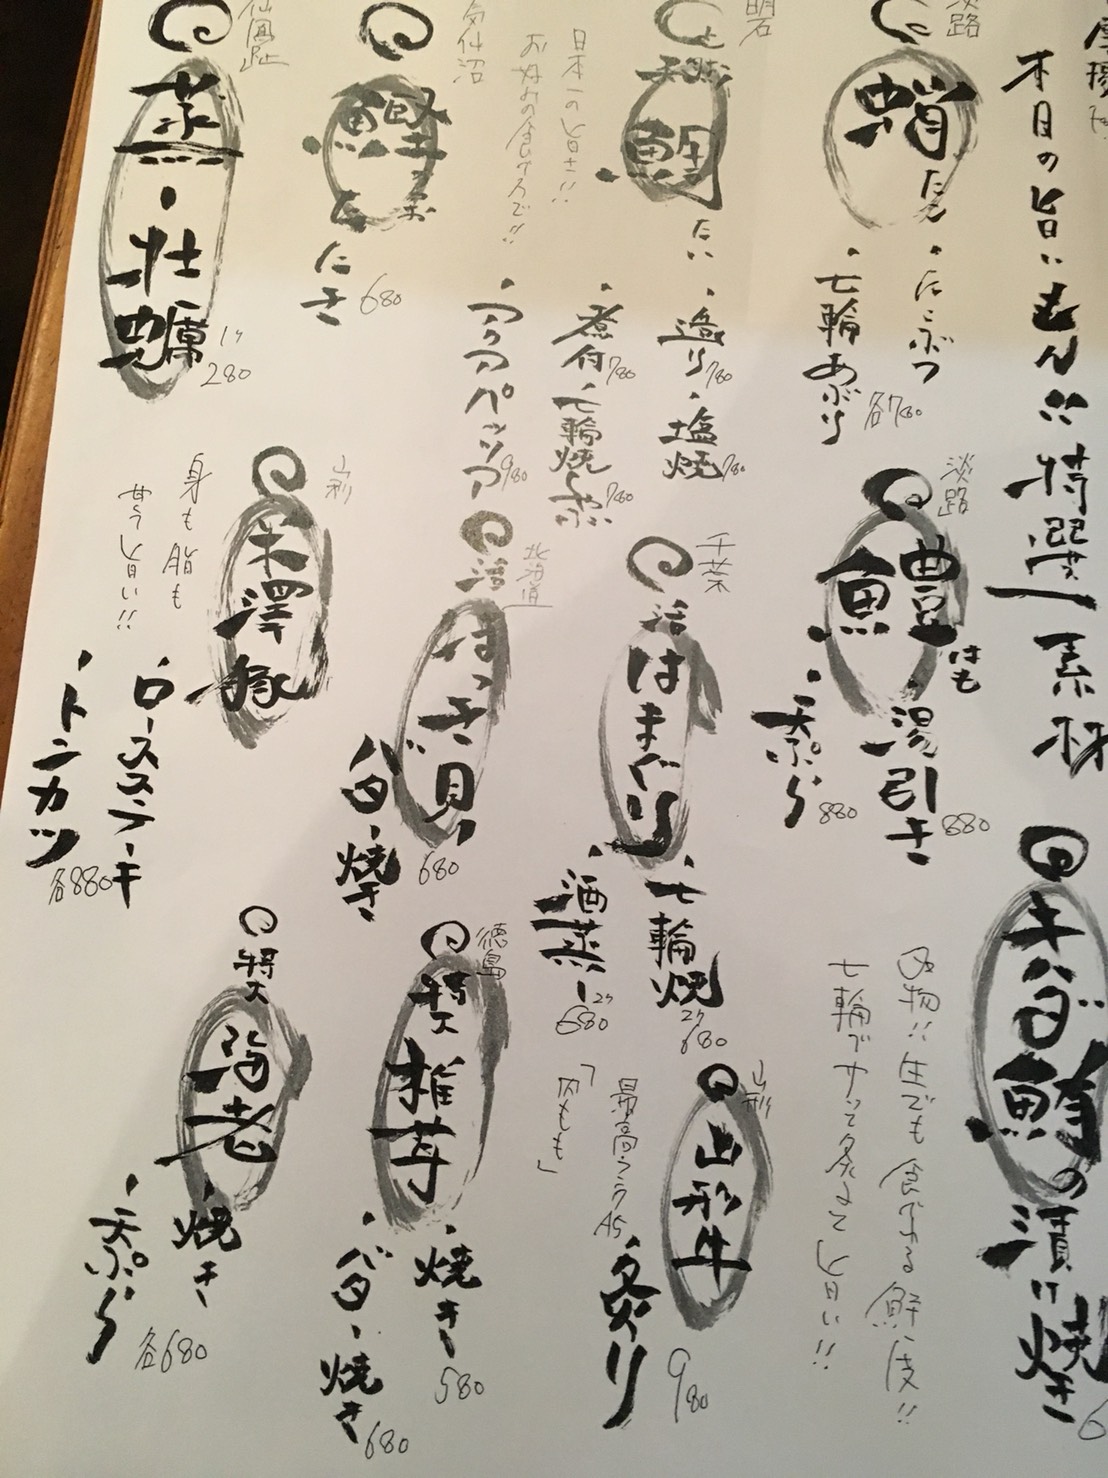 本日の旨いもん!! 特選素材
キハダ鮪の漬け焼き
淡路
蛸
たこ
・たこぶつ
・七輪あぶり
各780
淡路
鱧
はも
・湯引き
880
・天ぷら
880
名物!! 生でも食べれる鮮度!!
七輪でサッと炙って旨い!!
明石
天然
鯛
たい
・造り
780
・塩焼
780
・煮付
780
・七輪焼
780
・アクアパッツァ
980
日本一の旨さ!!
お好みの食べ方で!!
千葉
活
はまぐり
・七輪焼
2ケ
680
・酒蒸し
2ケ
680
山形
山形牛
・炙り
980
最高ランクA5
「内もも」
気仙沼
鰹
かつお
・たたき
680
北海道
活
ほっき貝
・バター焼き
680
徳島
特大
椎茸
・焼き
580
・バター焼き
680
仙鳳趾
蒸し牡蠣
1ケ
280
山形
米澤豚
身も脂も
甘く旨い!!
・ロースステーキ
・トンカツ
各880
特大
海老
・焼き
・天ぷら
各680